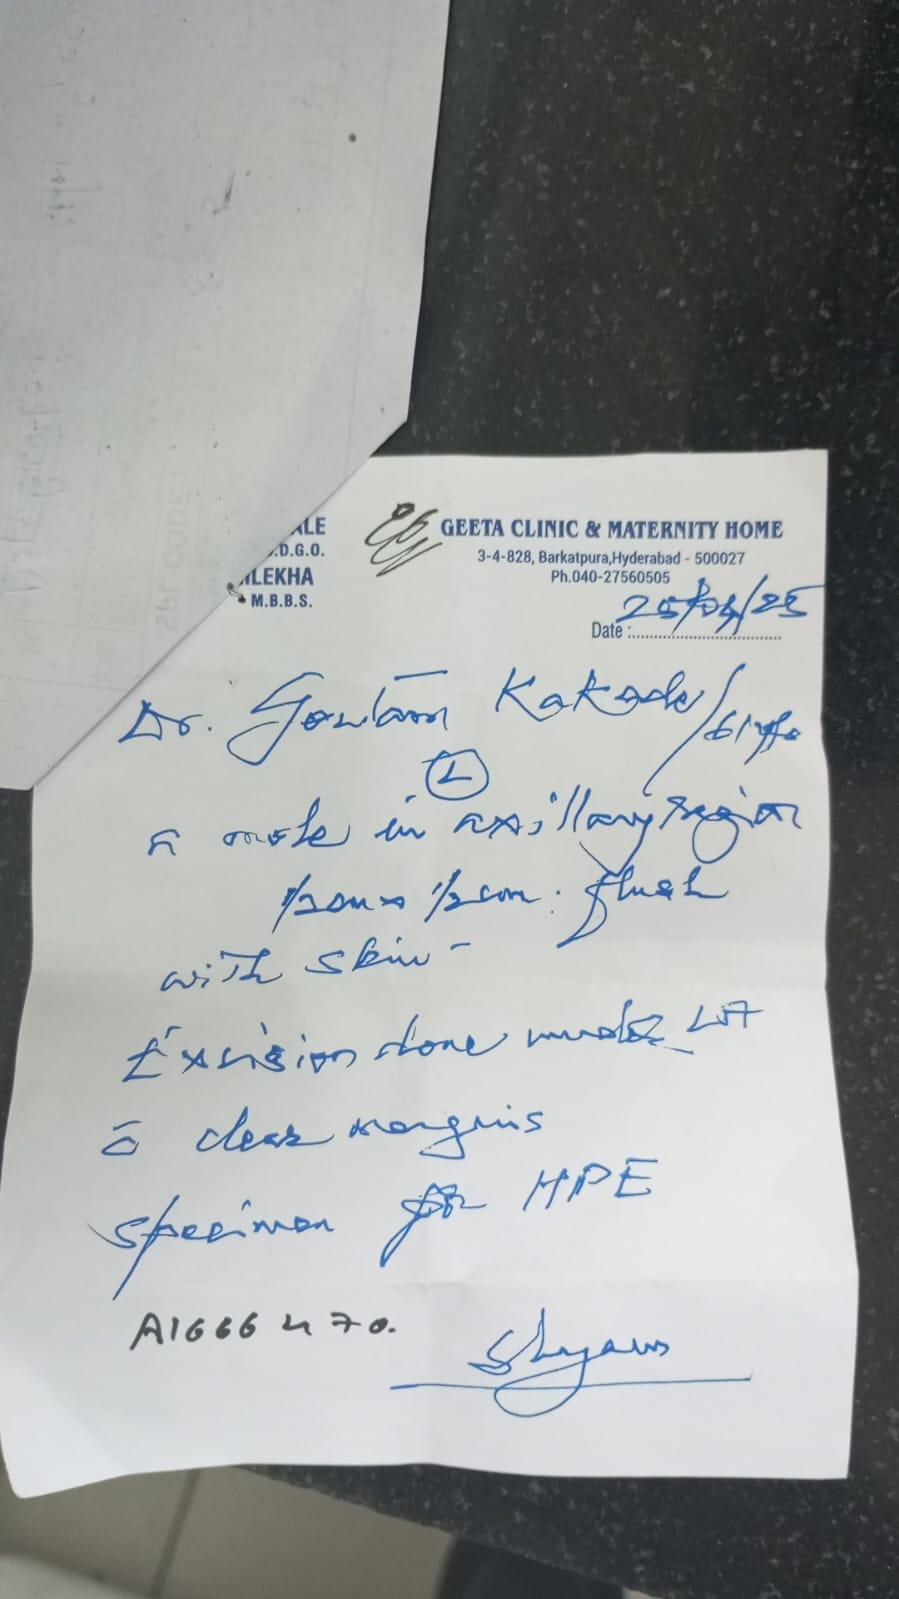 ALE
.D.G.O.
ILEKHA
M.B.B.S.
GEETA CLINIC & MATERNITY HOME
3-4-828, Barkatpura,Hyderabad - 500027
Ph.040-27560505
Date :
Dr. Goutam Kakade/
L
mole in axillary region
1/2cm x 1/2cm. flush
with skin-
Excision done under
c̄ clear margins
specimen for HPE
A1666470.
Shyam